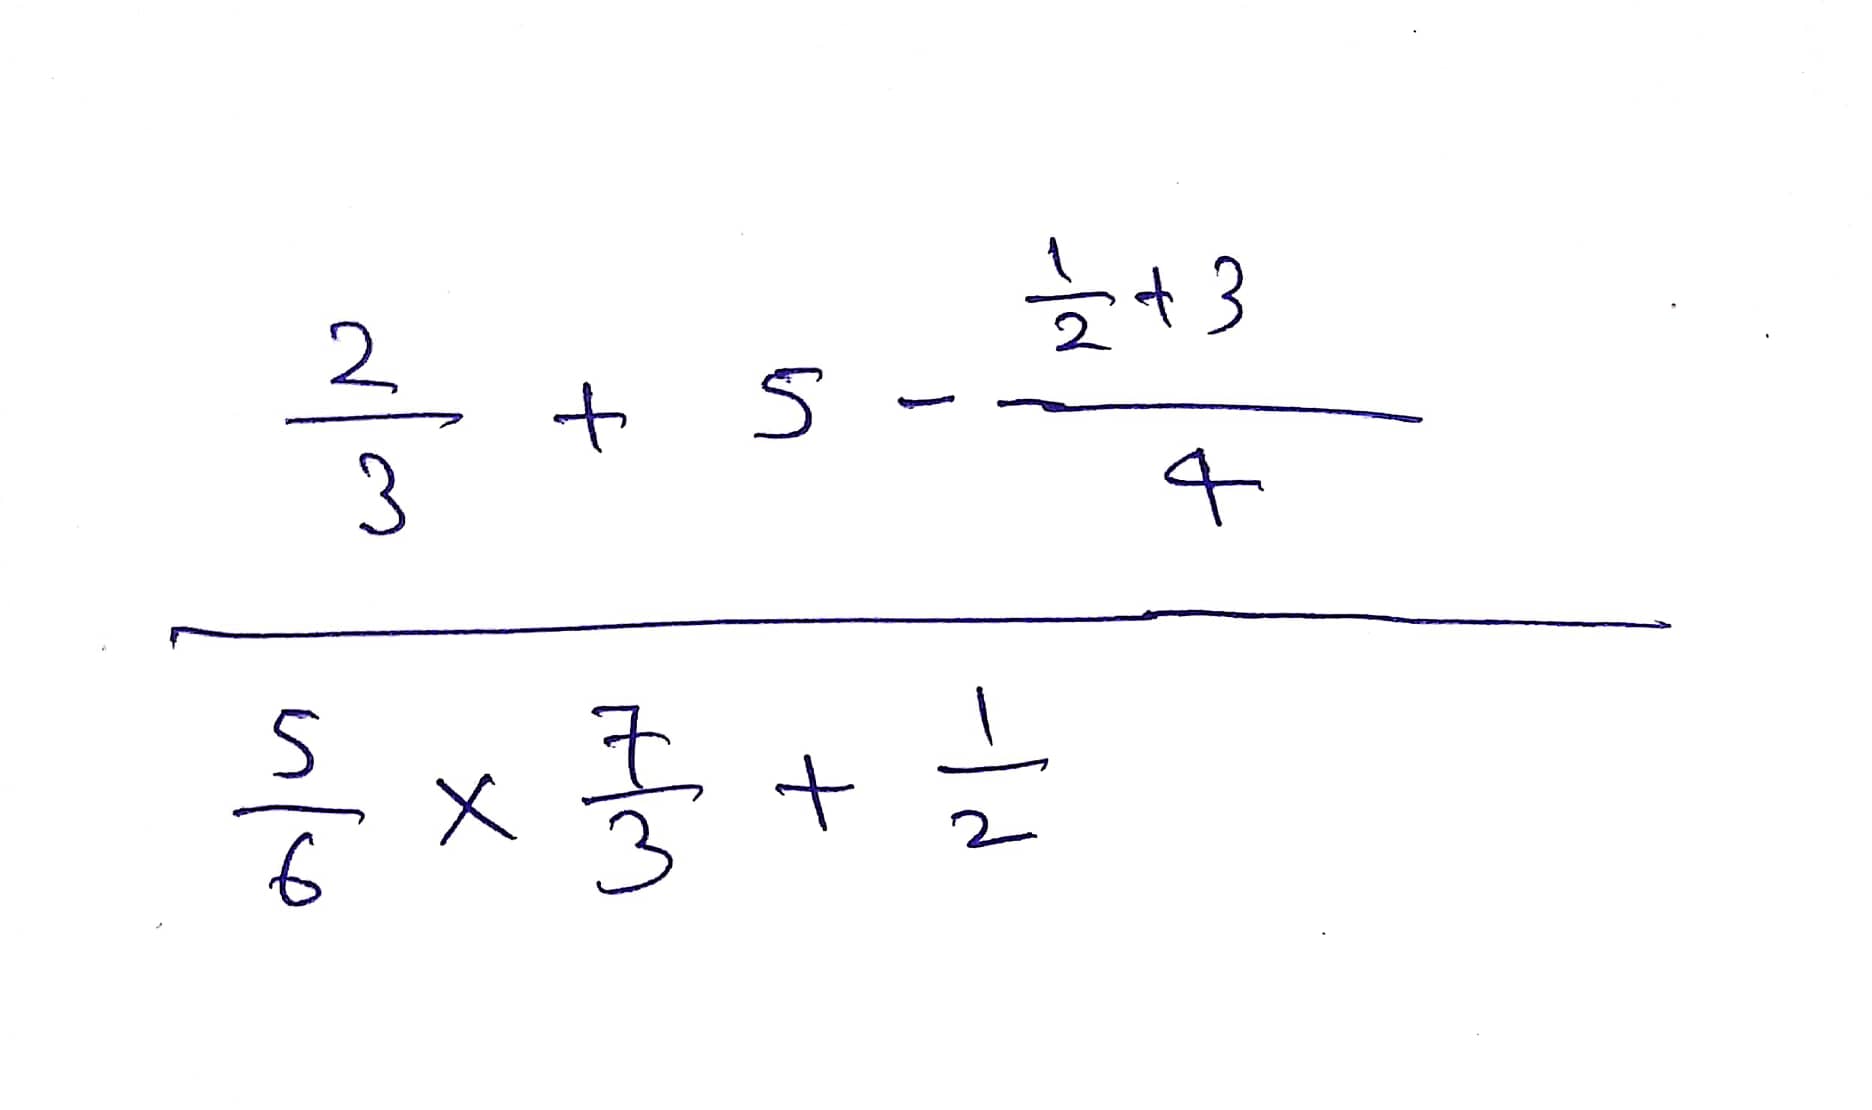 \frac{\frac{2}{3} + 5 - \frac{\frac{1}{2} + 3}{4}}{\frac{5}{6} \times \frac{7}{3} + \frac{1}{2}}